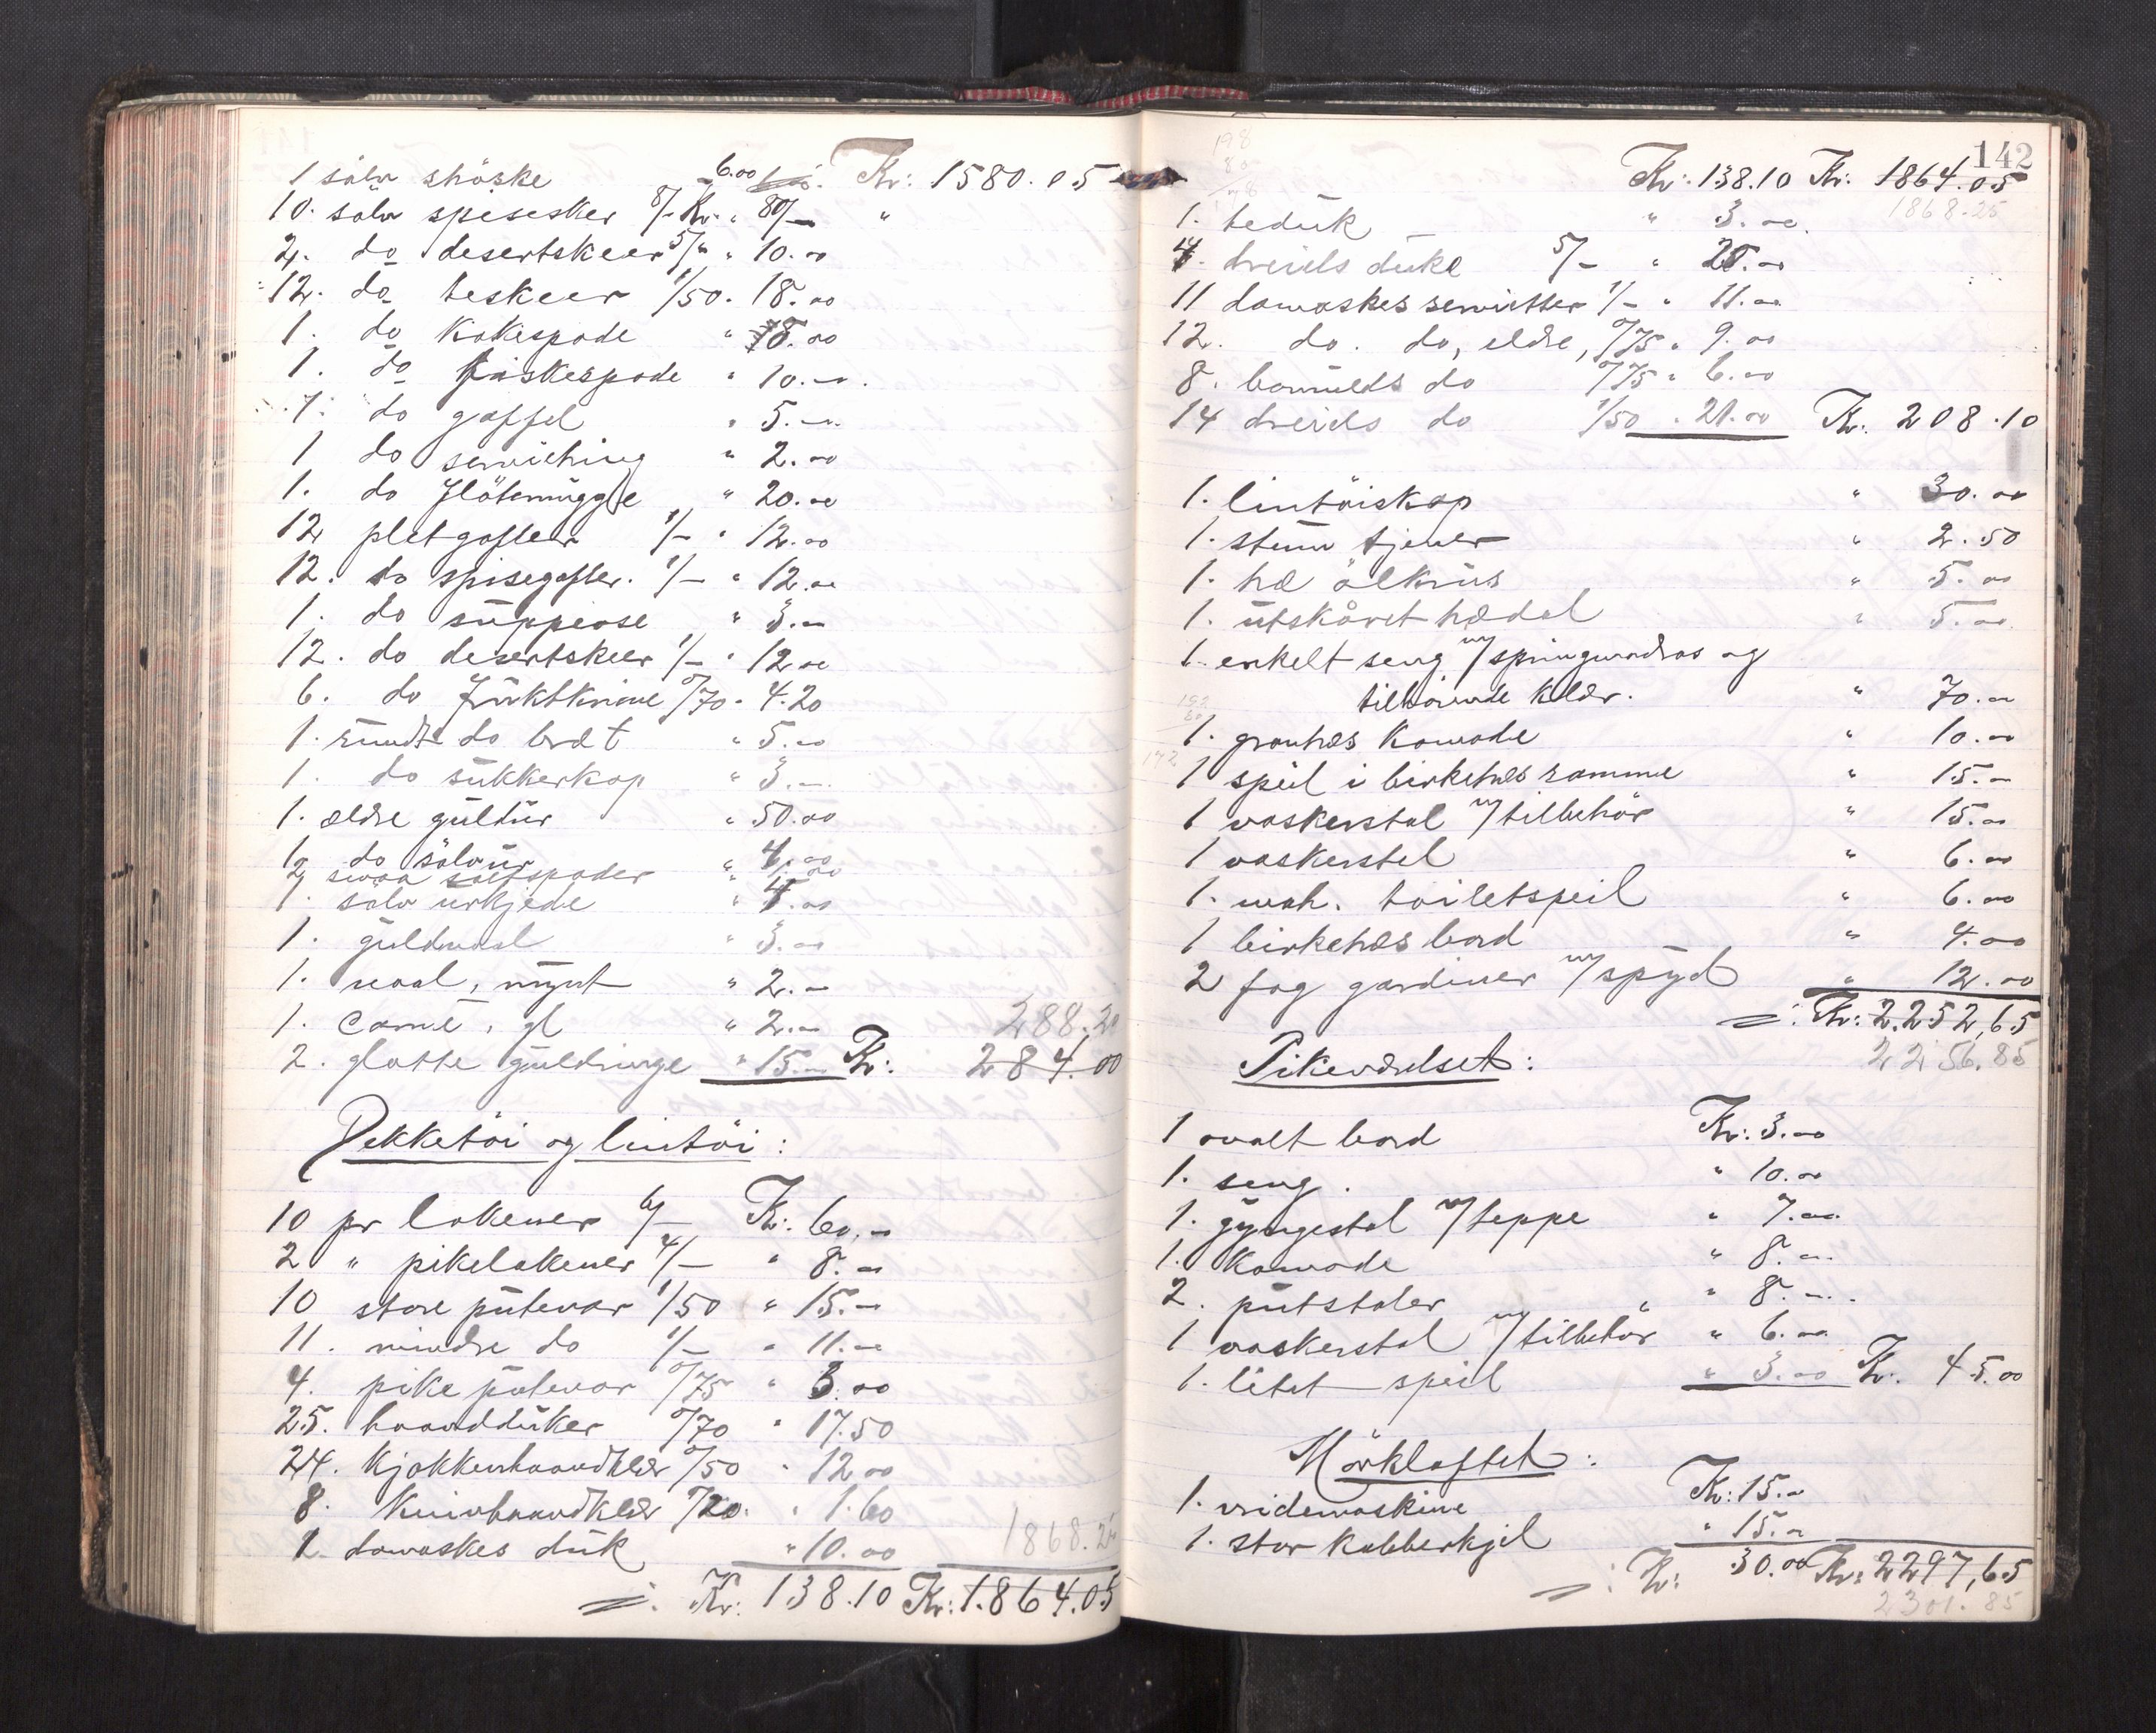 1 sölv shöske 6.00 Kr: 1580.05
10. sölv spiseskeer 8/- Kr. " 80/- "
2. do desertskeer 5/- " 10.00
12. do teskeer 1/50. 18.00
1. do Kakespade " 8.00
1. do fiskespade " 10.-
1. do gaffel " 5.-
1 do serviettring " 2.00
1. do flötemügge " 20.00
12 plet gafler 1/- " 12.00
12. do spisegafler. 1/- " 12.00
1. do süppeose " 3.-
12. do desertskeer 1/- " 12.00
6. do früktknive 0/70 " 4.20
1. rundt do bræt " 5.00
1. do sükkerkop " 3.-
1. ældre güldür " 50.00
1. do sölvür " 4.00
2 smaa saltspader "
1. sölv ürkjede " 4.00
1. güldnaal " 3.00
1. naal, mynt " 2.-
1. Camé, gl " 2.- 288.20
2. glatte güldringe " 15.- Kr: 284.00
Dekketöi og lintöi:
10 pr lakener 6/- Kr: 60.-
2 " pikelakener 4/- " 8.00
10 store pütevar 1/50 " 15.-
11. mindre do 1/- " 11.-
4. pike pütevar 0/75 " 3.00
25. haanddüker 0/70 " 17.50
24. Kjøkkenhaandklær 0/50 " 12.00
8. Knivhaandklær 0/20. " 1.60
1. damaskes dük " 10.00 1868.25
=: Kr: 138.10 Kr: 1.864.05
142
Kr: 138.10 Kr: 1864.05
1868.25
1. tedük " 3.00
4. dreiels düke 5/- " 20.00
11 damaskes servietter 1/- " 11.00
12. do. do, eldre, 0/75 " 9.00
8. bomulds do 0/75 " 6.00
14 dreiels do 1/50 " 21.00 Kr: 208.10
1. lintöiskap " 30.00
1. stum tjener " 2.50
1. træ ölkrüs " 5.00
1. ütskåret trædal " 5.00
1. enkelt seng m/ springmadras og
tilhörende klær. " 70.00
1. grantræs Komode " 10.00
1 speil i birketræs ramme " 15.-
1 vaskerstol m/ tilbehör " 15.00
1 vaskerstel " 6.00
1. mah. toiletspeil " 6.00
1 birketræs bord " 4.00
2 fag gardiner m/ spyd " 12.00
=: Kr: 2.252,65
2256.85
Pikeværelset:
1 ovalt bord Kr: 3.00
1. seng. " 10.00
1. gyngestol m/ teppe " 7.00
1. Komode " 8.-
2. pütstoler " 8.-
1 vaskerstol m/ tilbehör " 6.00
1. litet speil " 3.00 Kr. 45.00
Mörkloftet:
1. vridemaskine Kr: 15.-
1. stor Kobberkjel " 15.-
=: Kr: 30.00 Kr: 2297,65
2301.85